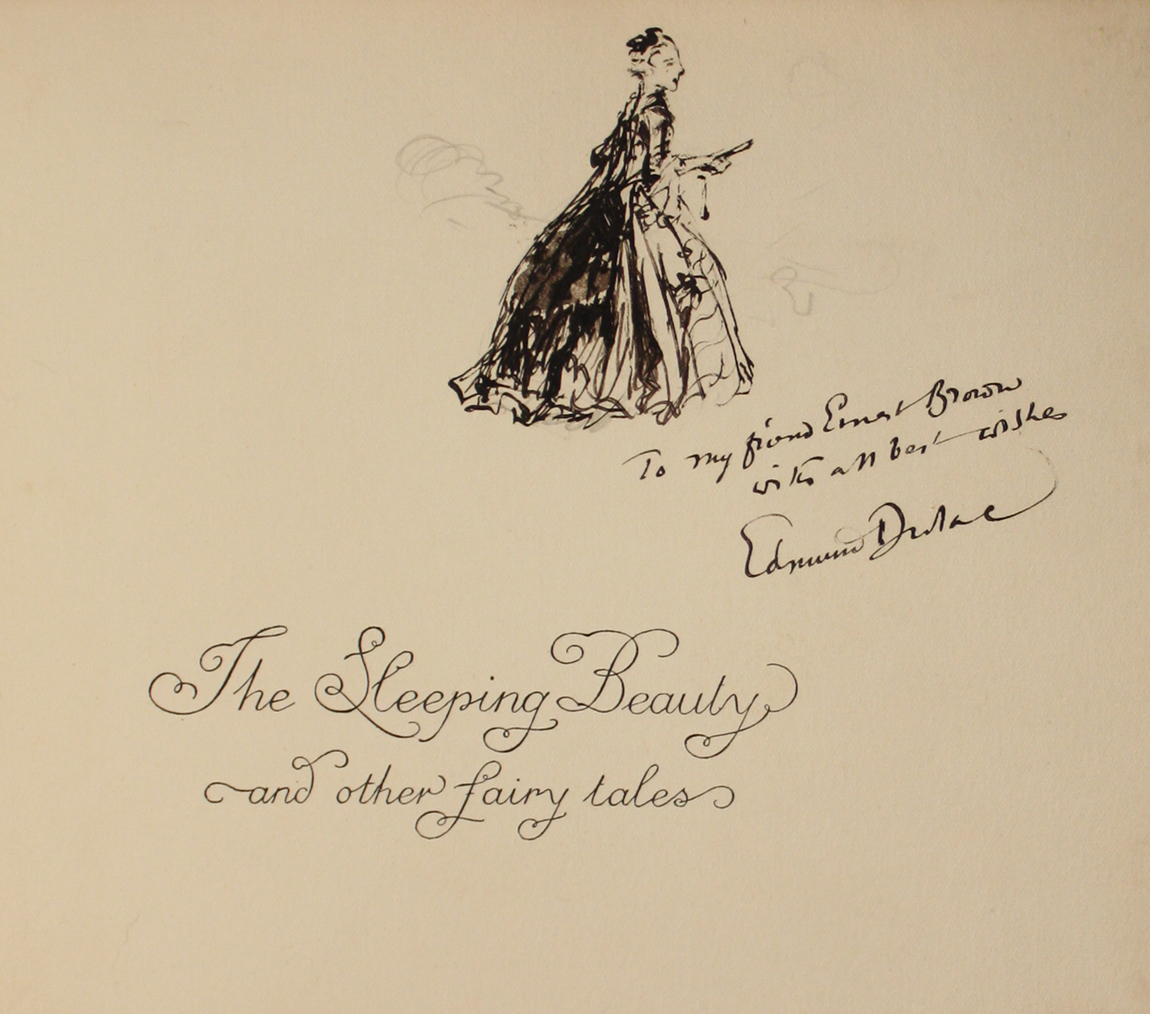 To my friend Ernest Brown
with all best wishes
Edmund Dulac
The Sleeping Beauty
and other fairy tales